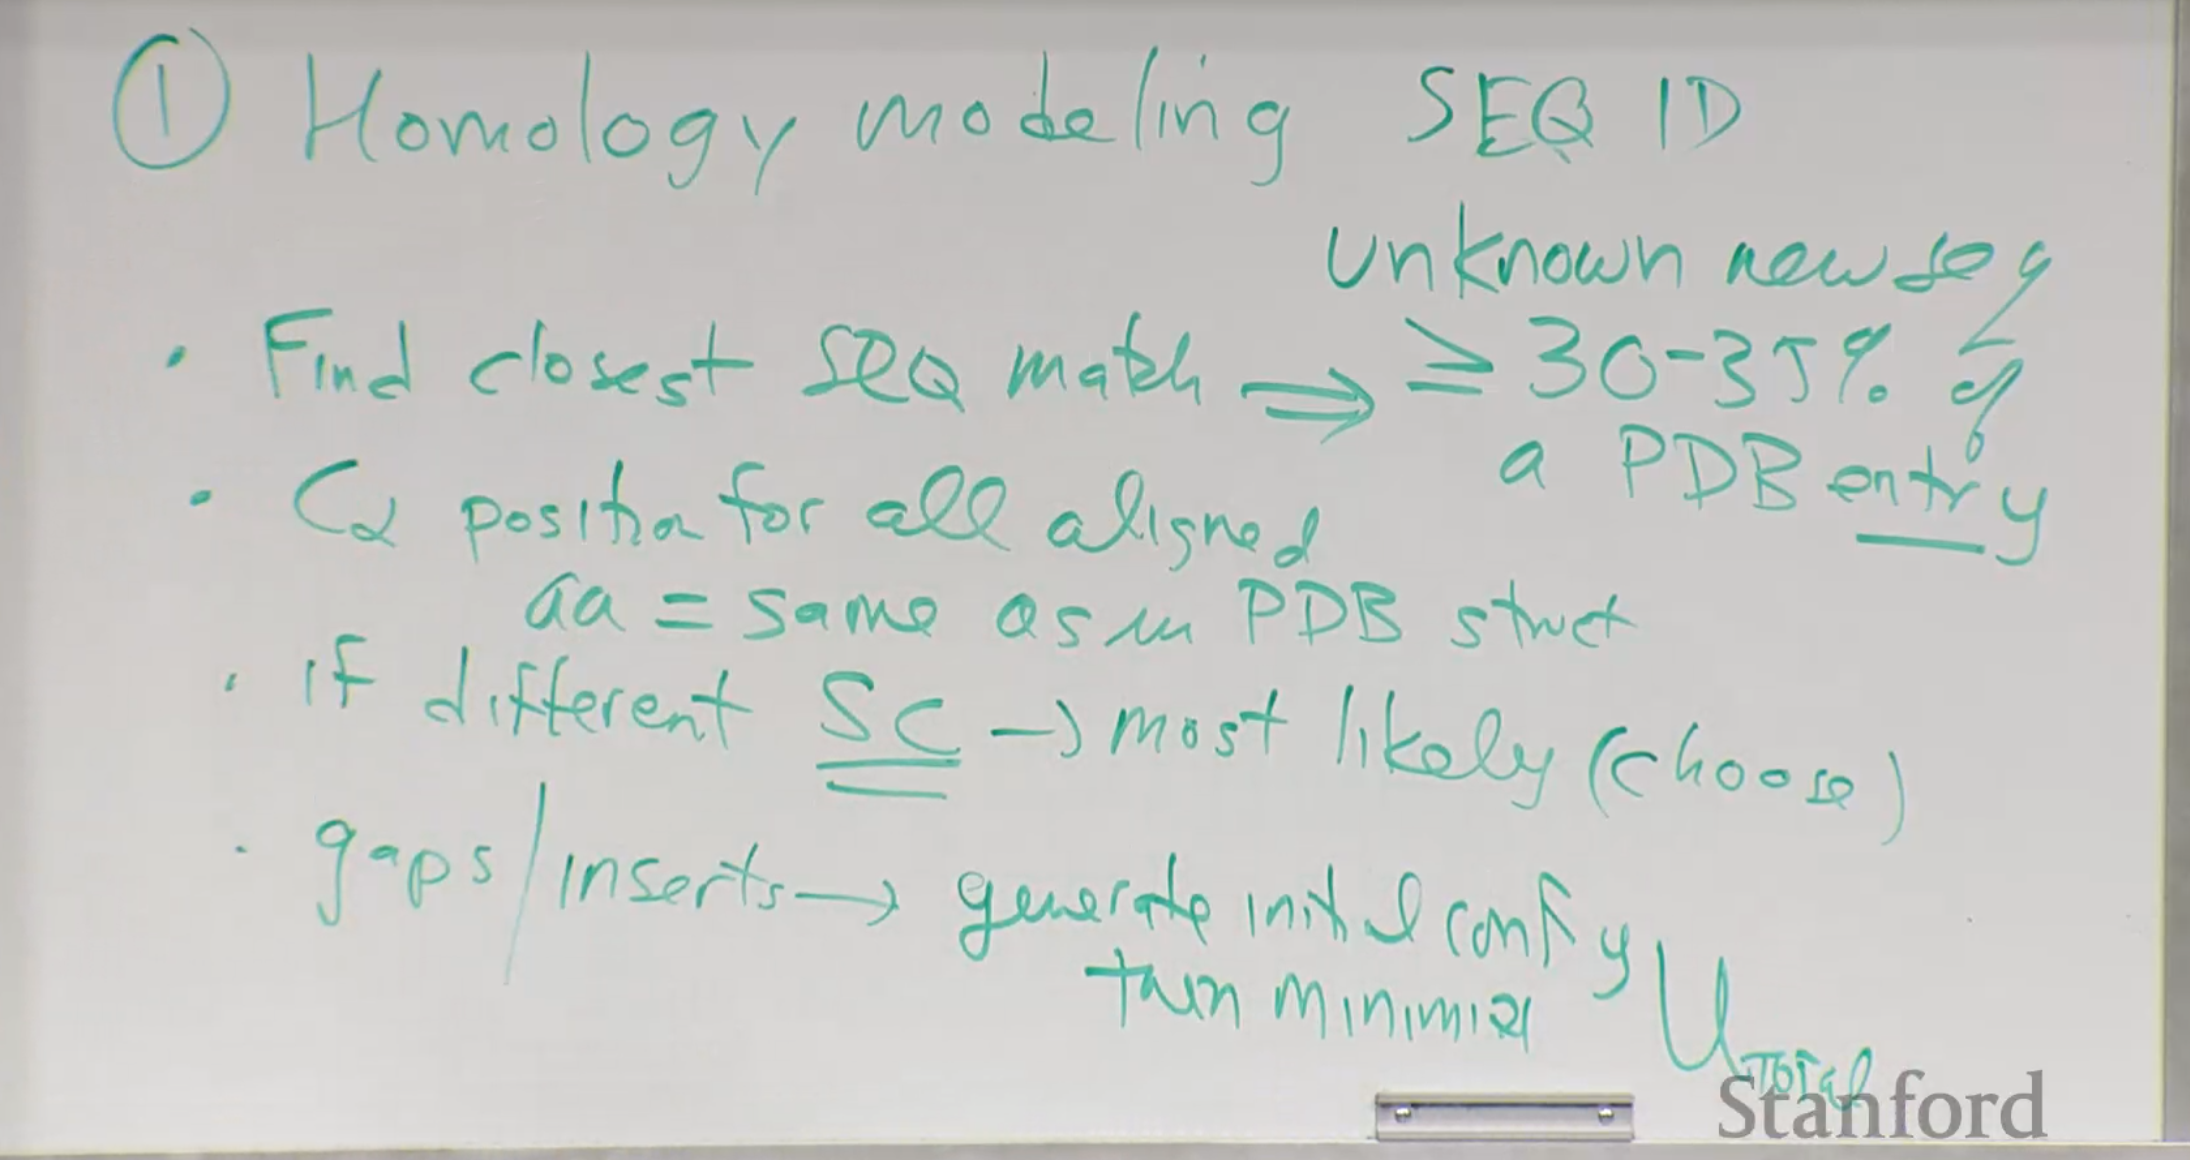 ① Homology modeling SEQ ID
unknown new seq
• Find closest SEQ match ⇒ ≥ 30-35% of
a PDB entry
• Cα position for all aligned
aa = same as in PDB struct
• if different SC → most likely (choose)
• gaps/inserts → generate initial config
then minimize U Total
Stanford